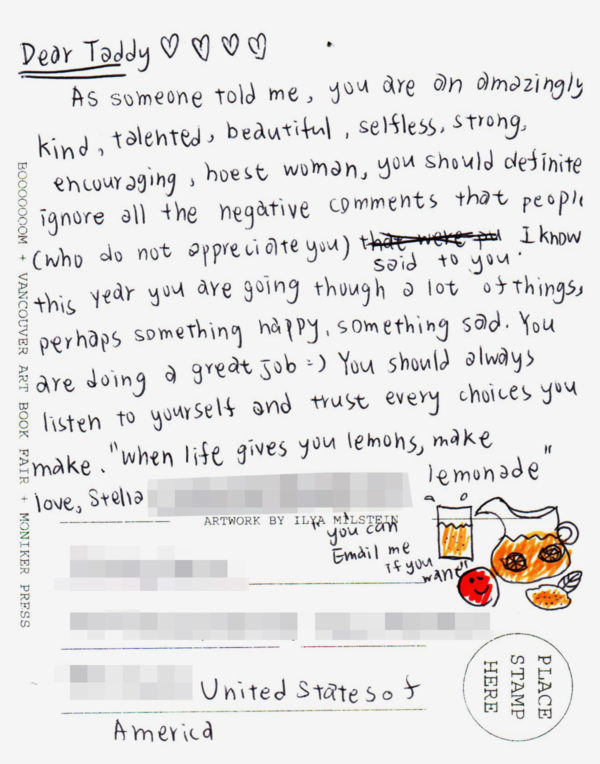 Dear Taddy ♡ ♡ ♡ ♡
As someone told me, you are an amazingly
kind, talented, beautiful, selfless, strong,
encouraging, hoest woman, you should definite
ignore all the negative comments that people
(who do not appreciate you) that were pu I know
said to you.
this year you are going though a lot of things,
perhaps something happy, something sad. You
are doing a great job =) You should always
listen to yourself and trust every choices you
make. "when life gives you lemons, make
lemonade"
love, Stella
ARTWORK BY ILYA MILSTEIN
"you can
Email me
if you
want"
United States of
America
PLACE
STAMP
HERE
BOOOOOOOM + VANCOUVER ART BOOK FAIR + MONIKER PRESS